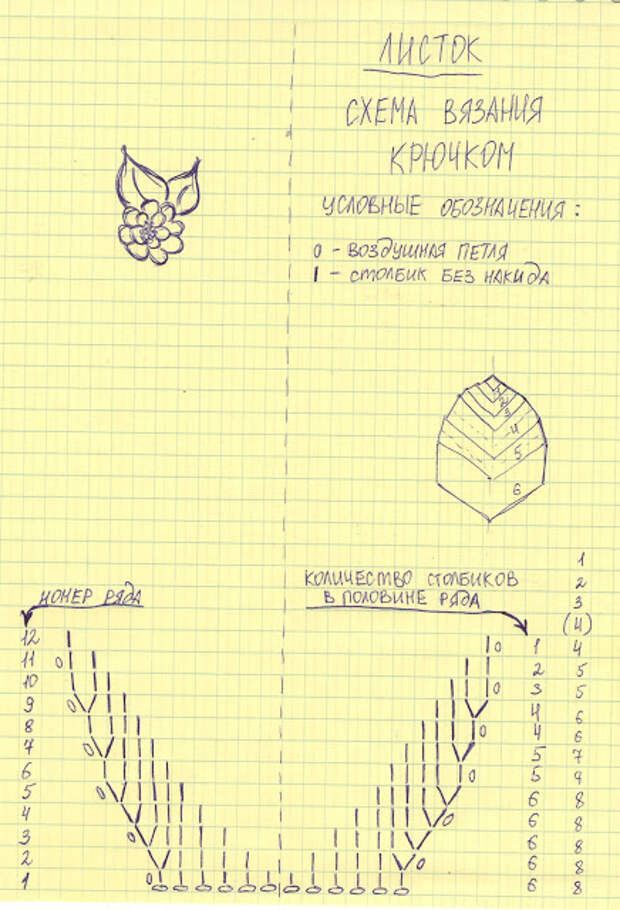 ЛИСТОК
СХЕМА ВЯЗАНИЯ
КРЮЧКОМ
УСЛОВНЫЕ ОБОЗНАЧЕНИЯ:
0 - ВОЗДУШНАЯ ПЕТЛЯ
I - СТОЛБИК БЕЗ НАКИДА
4
5
6
НОМЕР РЯДА
КОЛИЧЕСТВО СТОЛБИКОВ
В ПОЛОВИНЕ РЯДА
1
2
3
(4)
12 1 4
11 2 5
10 3 5
9 4 6
8 4 6
7 5 7
6 5 9
5 6 8
4 6 8
3 6 8
2 6 8
1 6 8